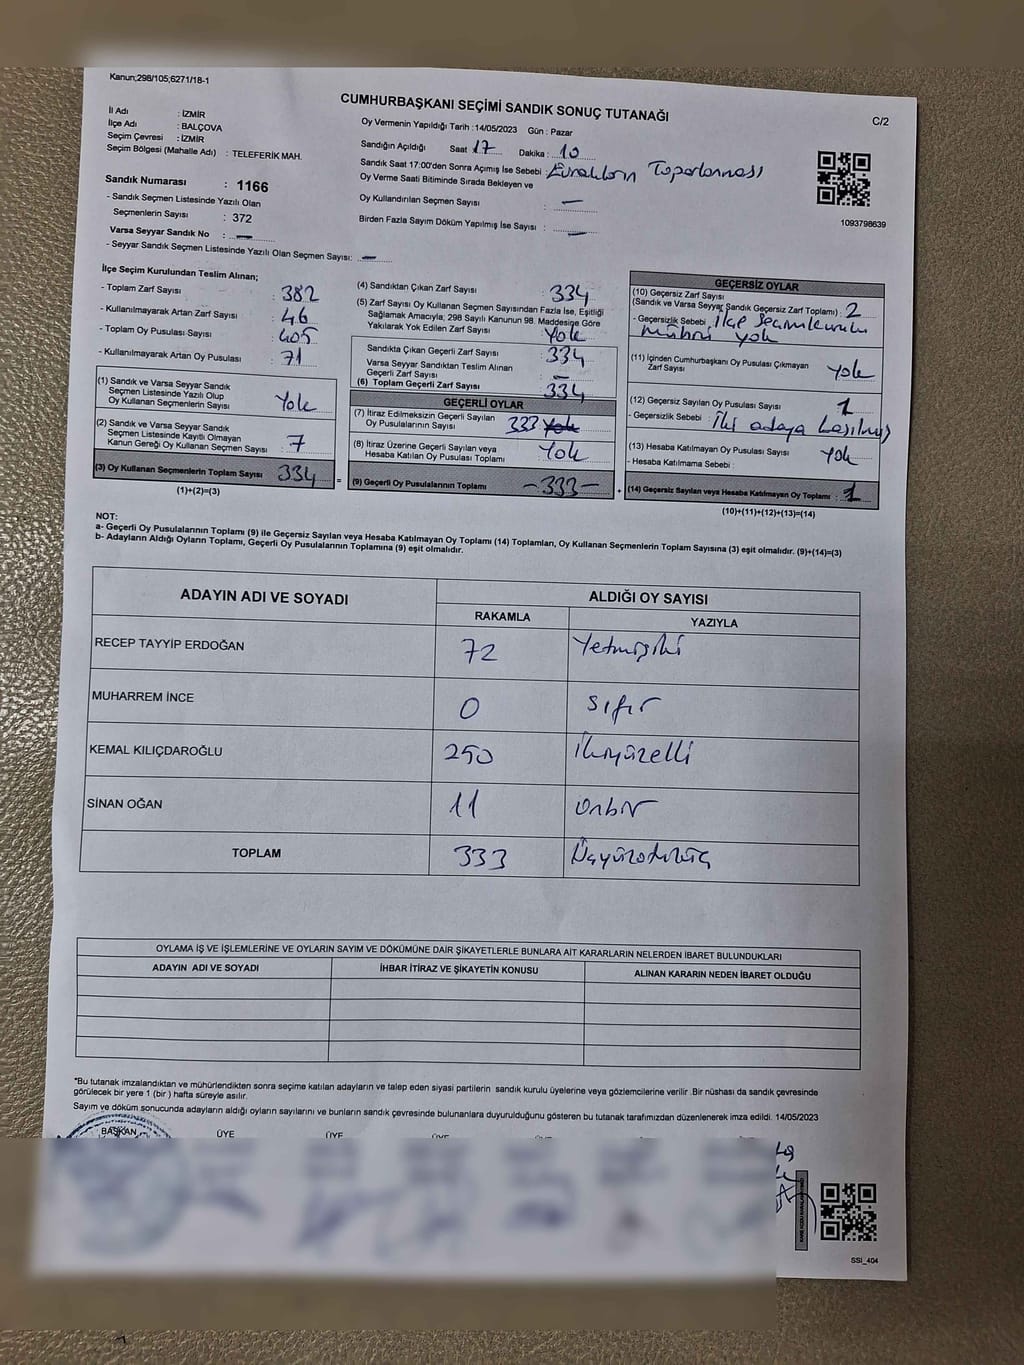 Kanun;298/105;6271/18-1
CUMHURBAŞKANI SEÇİMİ SANDIK SONUÇ TUTANAĞI
C/2
İl Adı : İZMİR
İlçe Adı : BALÇOVA
Seçim Çevresi : İZMİR
Seçim Bölgesi (Mahalle Adı) : TELEFERİK MAH.
Sandık Numarası : 1166
- Sandık Seçmen Listesinde Yazılı Olan
Seçmenlerin Sayısı : 372
Varsa Seyyar Sandık No : —
- Seyyar Sandık Seçmen Listesinde Yazılı Olan Seçmen Sayısı: —
Oy Vermenin Yapıldığı Tarih : 14/05/2023 Gün : Pazar
Sandığın Açıldığı Saat 17 Dakika : 10
Sandık Saat 17:00'den Sonra Açımış İse Sebebi Evrakların Toparlanması
Oy Verme Saati Bitiminde Sırada Bekleyen ve
Oy Kullandırılan Seçmen Sayısı : —
Birden Fazla Sayım Döküm Yapılmış İse Sayısı : —
1093798639
İlçe Seçim Kurulundan Teslim Alınan;
- Toplam Zarf Sayısı : 382
- Kullanılmayarak Artan Zarf Sayısı : 46
- Toplam Oy Pusulası Sayısı : 405
- Kullanılmayarak Artan Oy Pusulası : 71
(1) Sandık ve Varsa Seyyar Sandık
Seçmen Listesinde Yazılı Olup
Oy Kullanan Seçmenlerin Sayısı : Yok
(2) Sandık ve Varsa Seyyar Sandık
Seçmen Listesinde Kayıtlı Olmayan
Kanun Gereği Oy Kullanan Seçmen Sayısı : 7
(3) Oy Kullanan Seçmenlerin Toplam Sayısı : 334
(1)+(2)=(3)
(4) Sandıktan Çıkan Zarf Sayısı : 334
(5) Zarf Sayısı Oy Kullanan Seçmen Sayısından Fazla İse, Eşitliği
Sağlamak Amacıyla; 298 Sayılı Kanunun 98. Maddesine Göre
Yakılarak Yok Edilen Zarf Sayısı : Yok
Sandıkta Çıkan Geçerli Zarf Sayısı : 334
Varsa Seyyar Sandıktan Teslim Alınan
Geçerli Zarf Sayısı : —
(6) Toplam Geçerli Zarf Sayısı : 334
GEÇERLİ OYLAR
(7) İtiraz Edilmeksizin Geçerli Sayılan
Oy Pusulalarının Sayısı : 333 Yok
(8) İtiraz Üzerine Geçerli Sayılan veya
Hesaba Katılan Oy Pusulası Toplamı : Yok
= (9) Geçerli Oy Pusulalarının Toplamı : -333-
GEÇERSİZ OYLAR
(10) Geçersiz Zarf Sayısı
(Sandık ve Varsa Seyyar Sandık Geçersiz Zarf Toplamı) : 2
- Geçersizlik Sebebi : İlçe Seçim kurulu
mührü yok
(11) İçinden Cumhurbaşkanı Oy Pusulası Çıkmayan
Zarf Sayısı : Yok
(12) Geçersiz Sayılan Oy Pusulası Sayısı : 1
- Geçersizlik Sebebi : İki adaya basılmış
(13) Hesaba Katılmayan Oy Pusulası Sayısı : Yok
- Hesaba Katılmama Sebebi :
+ (14) Geçersiz Sayılan veya Hesaba Katılmayan Oy Toplamı : 1
(10)+(11)+(12)+(13)=(14)
NOT:
a- Geçerli Oy Pusulalarının Toplamı (9) ile Geçersiz Sayılan veya Hesaba Katılmayan Oy Toplamı (14) Toplamları, Oy Kullanan Seçmenlerin Toplam Sayısına (3) eşit olmalıdır. (9)+(14)=(3)
b- Adayların Aldığı Oyların Toplamı, Geçerli Oy Pusulalarının Toplamına (9) eşit olmalıdır.
ADAYIN ADI VE SOYADI ALDIĞI OY SAYISI
RAKAMLA YAZIYLA
RECEP TAYYİP ERDOĞAN 72 Yetmişiki
MUHARREM İNCE 0 sıfır
KEMAL KILIÇDAROĞLU 250 İkiyüzelli
SİNAN OĞAN 11 onbir
TOPLAM 333 Üçyüzotuzüç
OYLAMA İŞ VE İŞLEMLERİNE VE OYLARIN SAYIM VE DÖKÜMÜNE DAİR ŞİKAYETLERLE BUNLARA AİT KARARLARIN NELERDEN İBARET BULUNDUKLARI
ADAYIN ADI VE SOYADI İHBAR İTİRAZ VE ŞİKAYETİN KONUSU ALINAN KARARIN NEDEN İBARET OLDUĞU
*Bu tutanak imzalandıktan ve mühürlendikten sonra seçime katılan adayların ve talep eden siyasi partilerin sandık kurulu üyelerine veya gözlemcilerine verilir .Bir nüshası da sandık çevresinde
görülecek bir yere 1 (bir ) hafta süreyle asılır.
Sayım ve döküm sonucunda adayların aldığı oyların sayılarını ve bunların sandık çevresinde bulunanlara duyurulduğunu gösteren bu tutanak tarafımızdan düzenlenerek imza edildi. 14/05/2023
BAŞKAN ÜYE ÜYE ÜYE ÜYE
SSİ_404